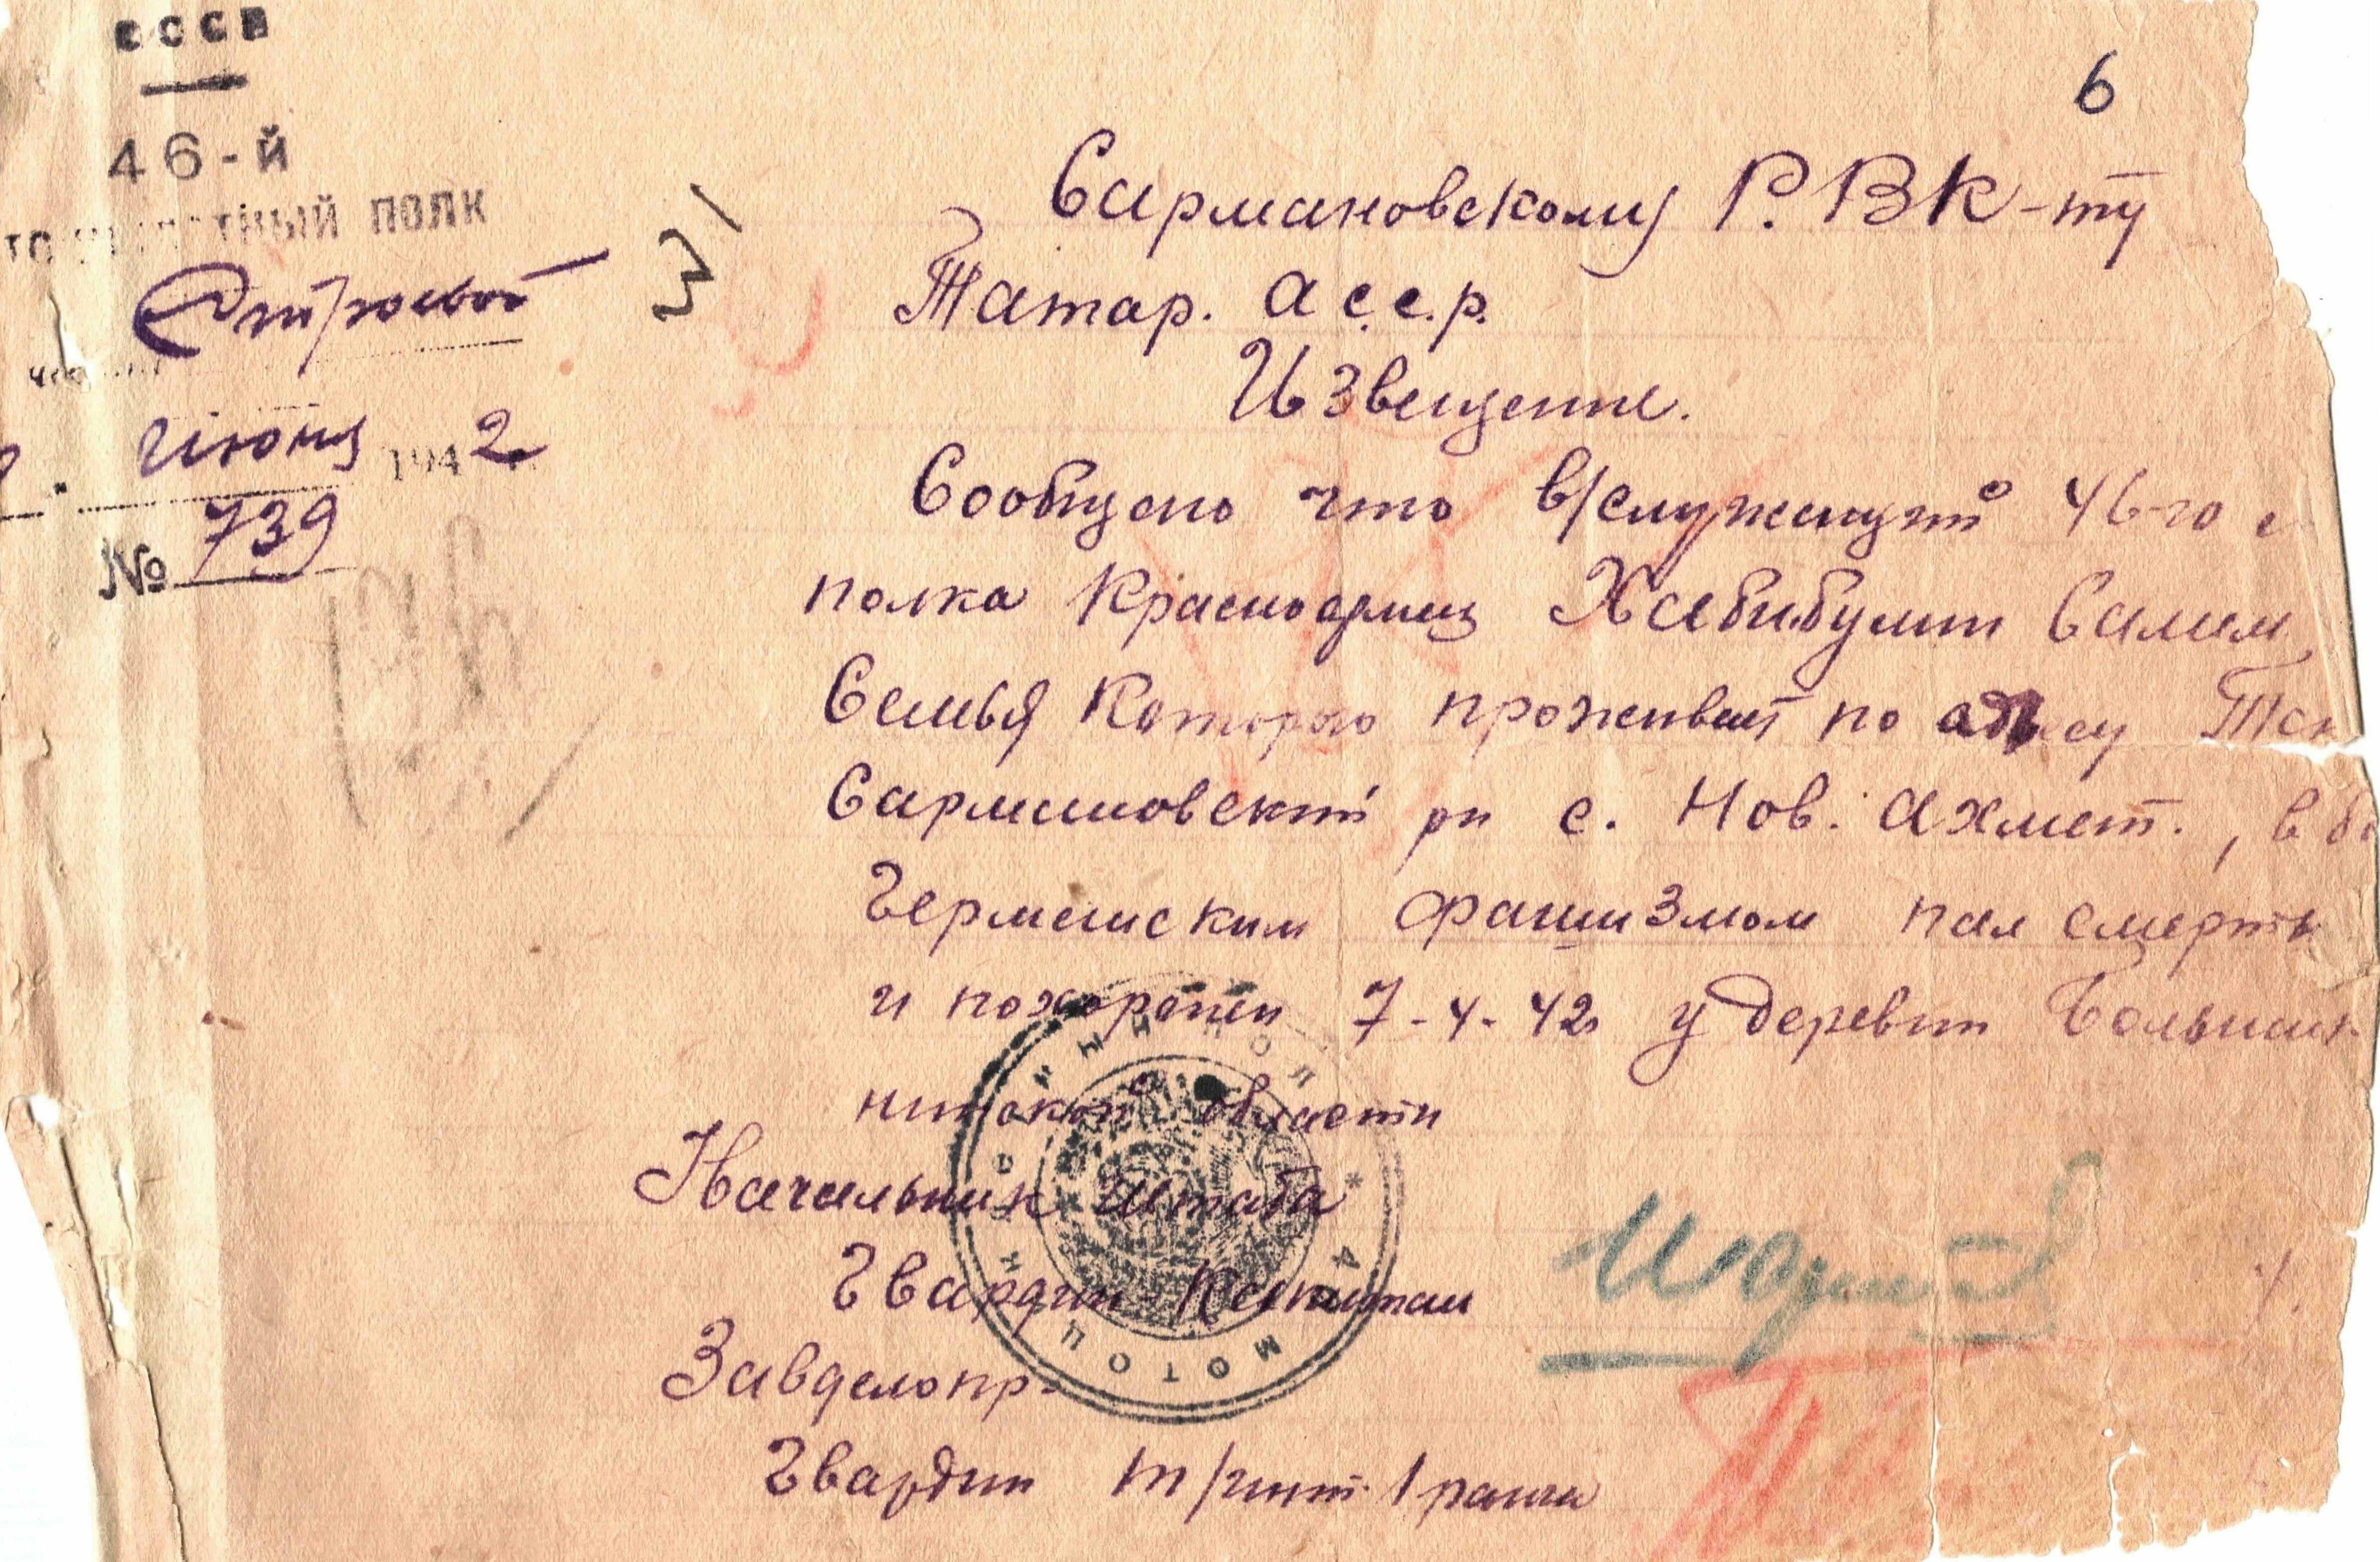 СССР
46-й
ПОЛК
Строевой
июня 1942
№ 739
6
Сармановскому Р.ВК-ту
Татар. а с.с.р.
Извещение.
Сообщено что в/служащий 46-го
полка Красноармиц Хабибулин Салим
Семья Которого проживает по адресу
Сармановский рн с. Нов. Ахмет., в
Германским фашизмом пал смерть
и похоронен 7-4-42 у деревни
области
Начальник штаба
Гвардии-Капитан
Завделопр-
Гвардии т/инт. 1 ранга
МОТОЦ